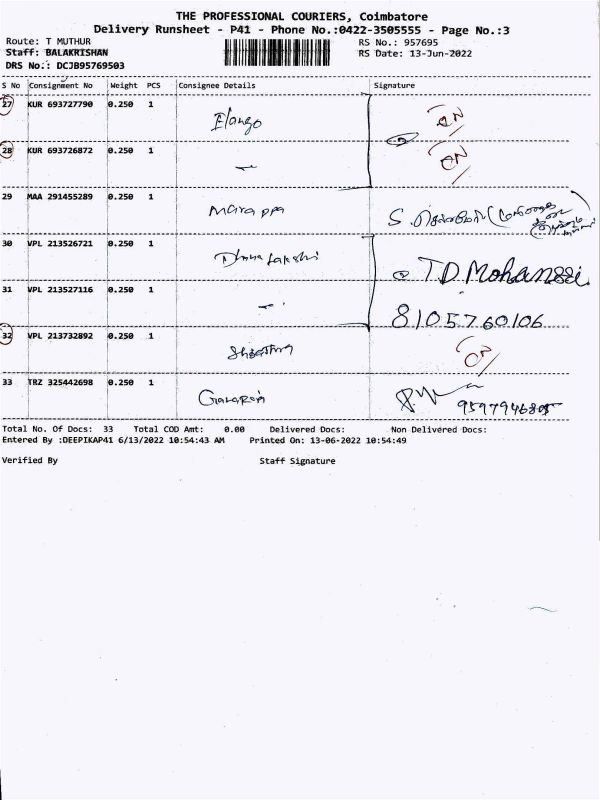 THE PROFESSIONAL COURIERS, Coimbatore
Delivery Runsheet - P41 - Phone No.:0422-3505555 - Page No.:3
Route: T MUTHUR
RS No.: 957695
Staff: BALAKRISHAN
RS Date: 13-Jun-2022
DRS No.: DCJB95769503
S No Consignment No Weight PCS Consignee Details Signature
27 KUR 693727790 0.250 1 Elango
28 KUR 693726872 0.250 1
29 MAA 291455289 0.250 1 S.
30 VPL 213526721 0.250 1 T.D.Mohan
31 VPL 213527116 0.250 1 8105760106
32 VPL 213732892 0.250 1
33 TRZ 325442698 0.250 1
Total No. Of Docs: 33 Total COD Amt: 0.00 Delivered Docs: Non Delivered Docs:
Entered By :DEEPIKAP41 6/13/2022 10:54:43 AM Printed On: 13-06-2022 10:54:49
Verified By Staff Signature